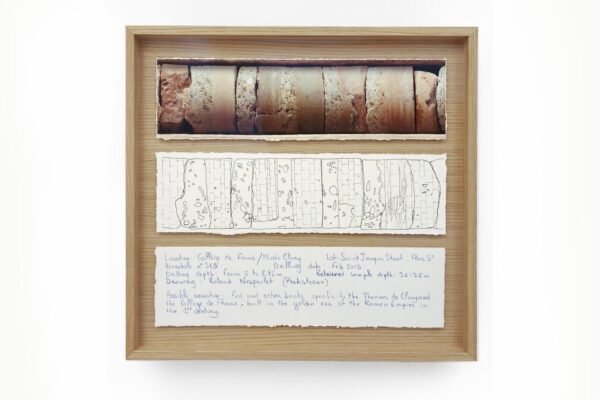 Location College de France / Musée Cluny Lot Saint Jacques Street, Paris 5°
Borehole n° SC3 Drilling date: Feb 2015
Drilling depth: From 0 to m Retained sample depth:
Drawing: Roland Nespoulet (Prehistorian)
Possible narrative: Red and ochre bricks specific to the Thermes de Cluny and
the College de France, built in the golden era of the Roman Empire in
the 1st century.